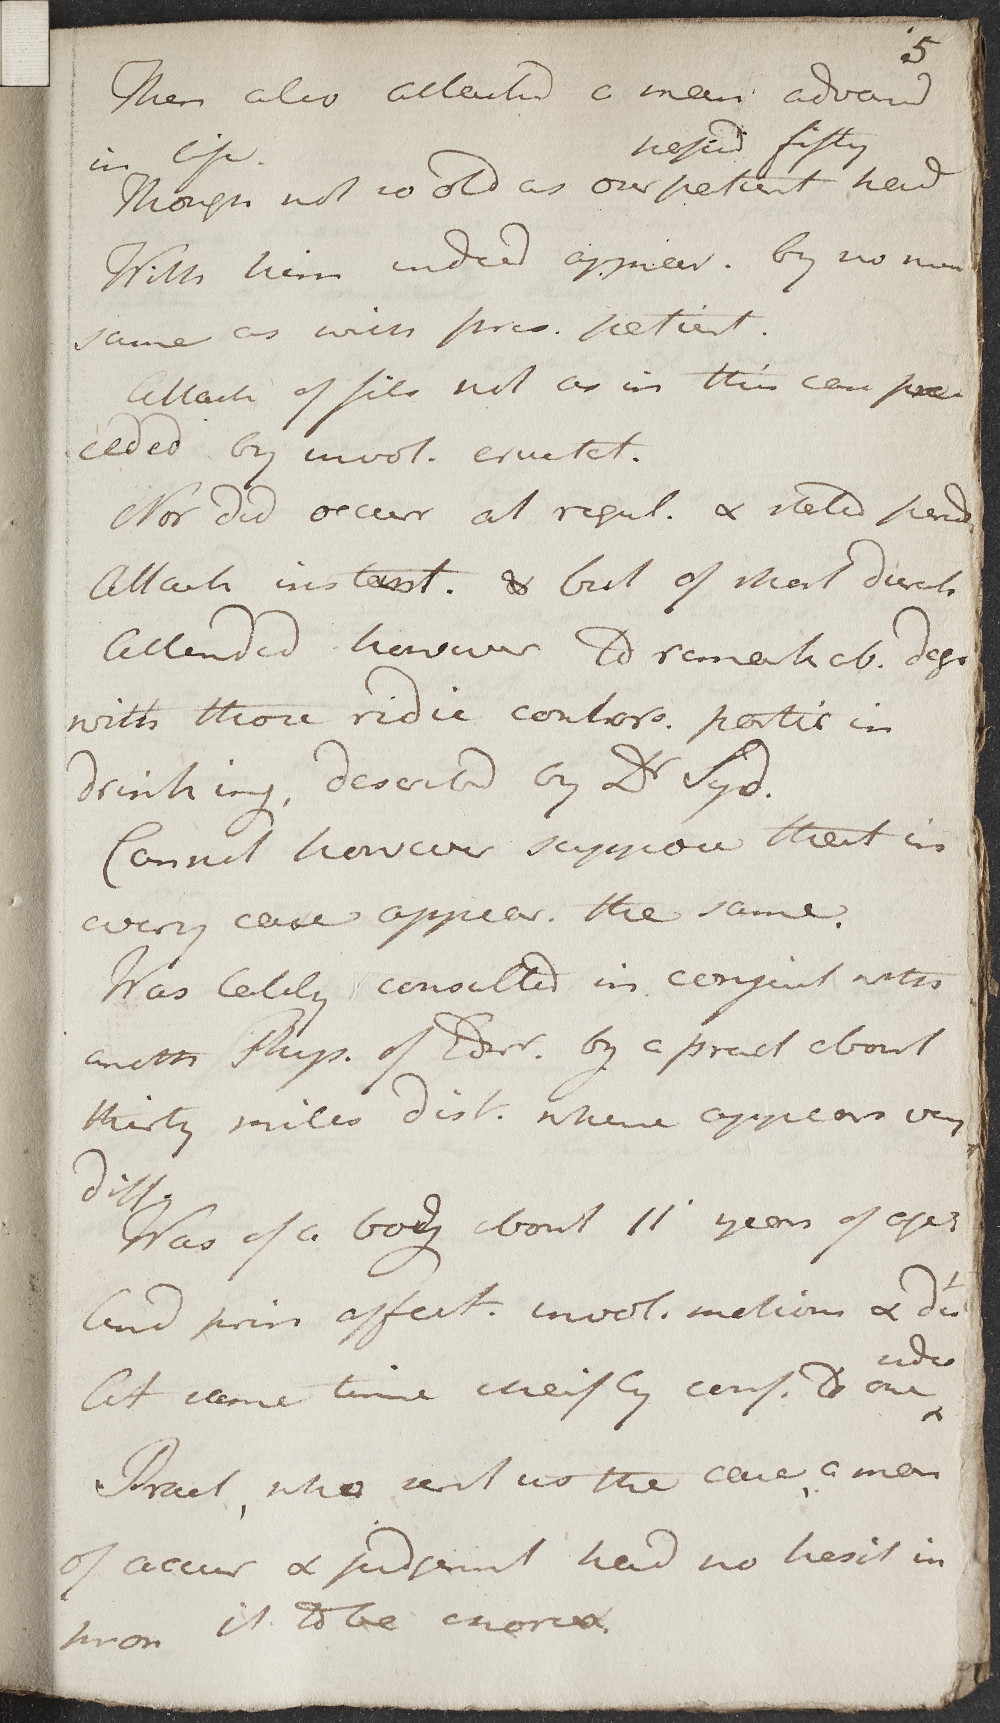 5
Then also attacked a man advancd
in life.
passed fifty
Though not so old as our patient had
With him indeed appear. by no mean
same as with pres. patient.
Attack of fits not as in this case pre
ceded by invol. eructat.
Nor did occur at regul. & stated period
Attack instant. & but of short durat
Attended however to remarkab. degr
with those ridic contors. partic in
drinking, described by Dr Syd.
Cannot however suppose that in
every case appear. the same.
Was lately consulted in conjunct with
anoth Phys. of Edinr. by a pract about
thirty miles dist. where appears very
diff.
Was of a body about 11 years of age
And prin affect. invol. motions &
At same time chiefly conf. to one
side &
Pract, who sent us the case, a man
of accur & judgment had no hesit in
pron it to be chorea.